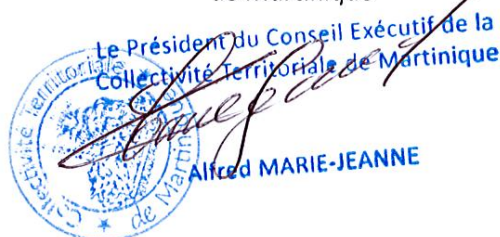 de Martinique
Le Président du Conseil Exécutif de la
Collectivité Territoriale de Martinique
Alfred MARIE-JEANNE
Collectivité Territoriale
de Martinique